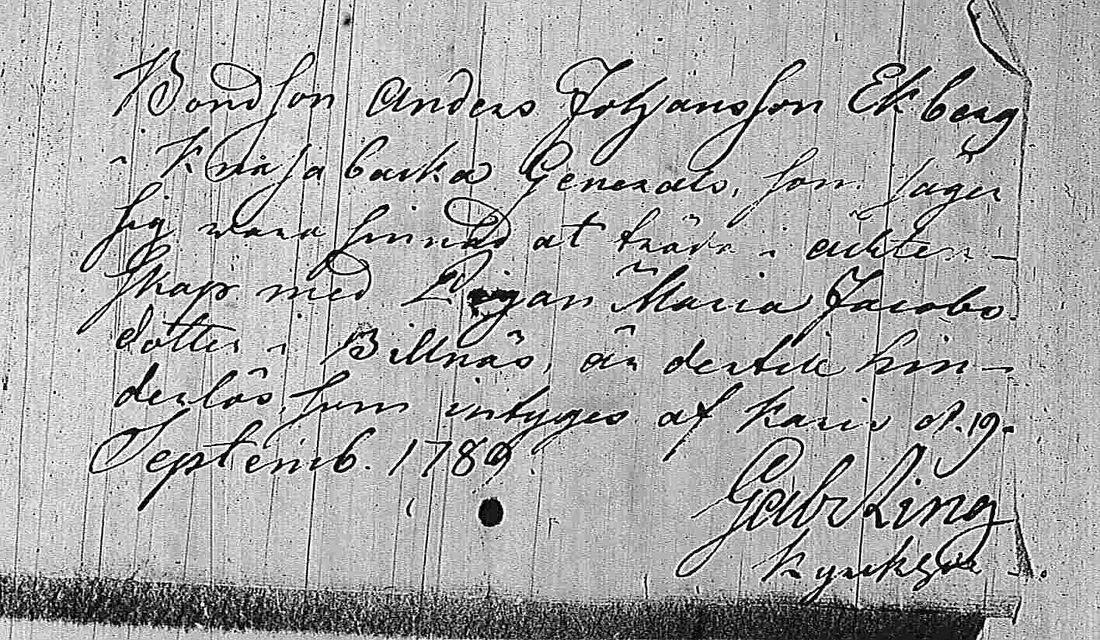 Bondson Anders Johansson Ekberg
i Knipabacka Generals, som säger
sig wara sinnad at träda i ächten-
skap med Pigan Maria Jacobs
dotter i Billnäs, är dertill hin-
derlös, som intyges af Karis d. 19.
Septemb. 1789.
Gabr Ring
Kyrckhr